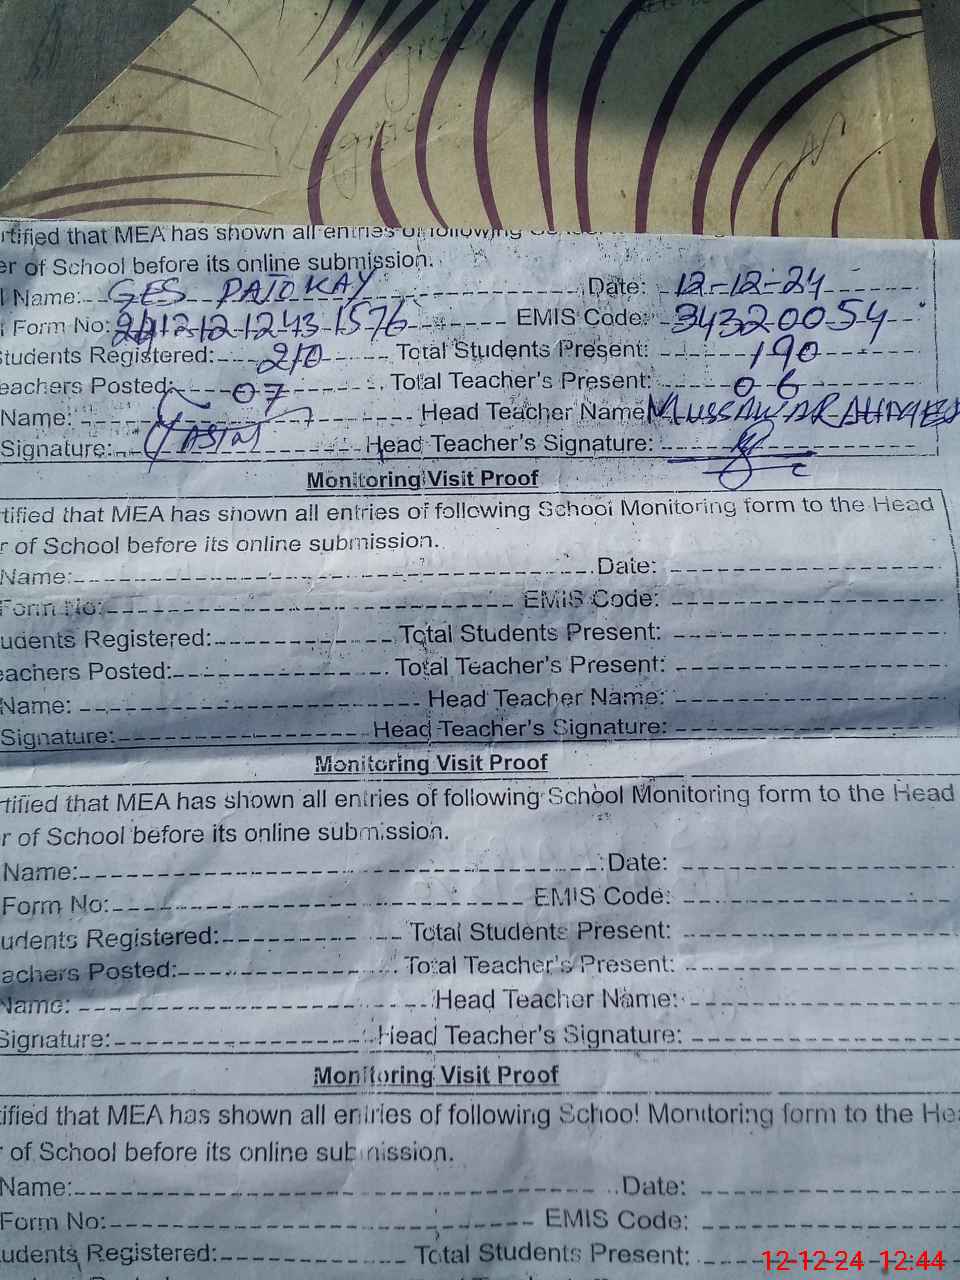 rtified that MEA has shown all entries of following
er of School before its online submission.
l Name: GES PATOKAY Date: 12-12-24
Form No: 12-12-1243-1576 EMIS Code: 34320054
tudents Registered: 210 Total Students Present: 190
eachers Posted: 07 Total Teacher's Present: 06
Name: Head Teacher Name: MUSSAWAR AHMED
Signature: Yasin Head Teacher's Signature:
Monitoring Visit Proof
tified that MEA has shown all entries of following School Monitoring form to the Head
r of School before its online submission.
Name: Date:
Form No: EMIS Code:
udents Registered: Total Students Present:
eachers Posted: Total Teacher's Present:
Name: Head Teacher Name:
Signature: Head Teacher's Signature:
Monitoring Visit Proof
rtified that MEA has shown all entries of following School Monitoring form to the Head
r of School before its online submission.
Name: Date:
Form No: EMIS Code:
udents Registered: Total Students Present:
achers Posted: Total Teacher's Present:
Name: Head Teacher Name:
Signature: Head Teacher's Signature:
Monitoring Visit Proof
ified that MEA has shown all entries of following School Monitoring form to the Hea
r of School before its online submission.
Name: Date:
Form No: EMIS Code:
udents Registered: Total Students Present:
12-12-24 12:44